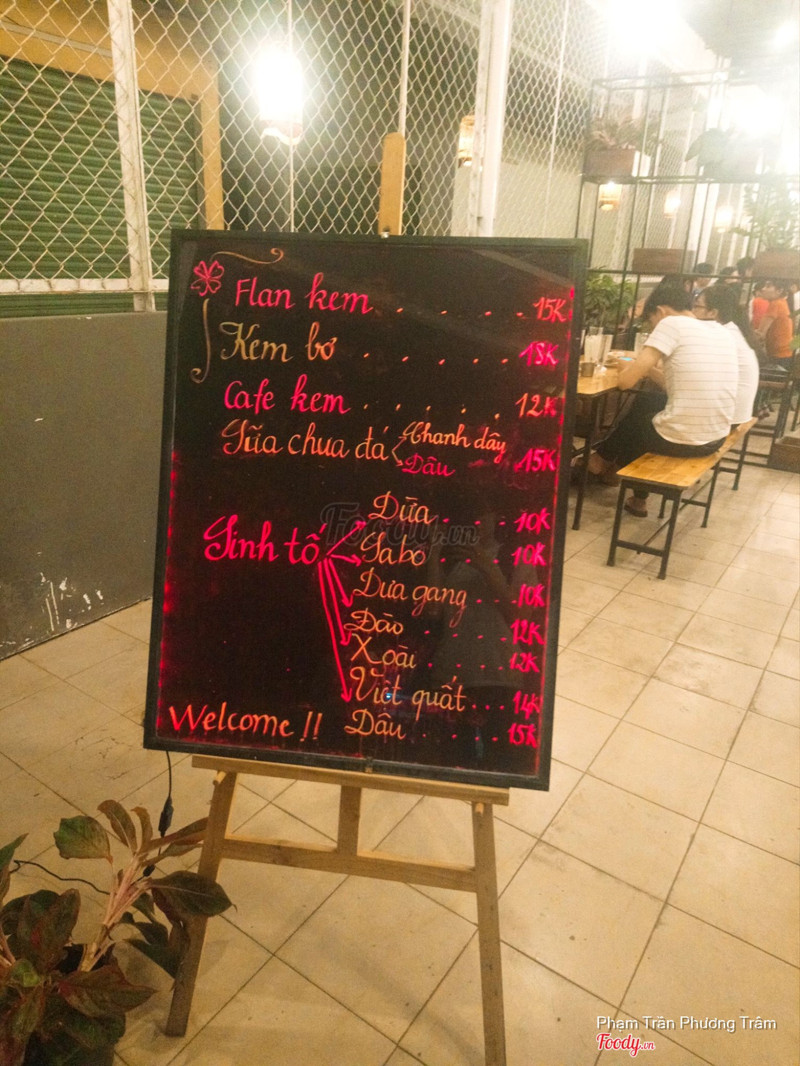 Flan kem . . . . . 15K
Kem bơ . . . . . 18K
Cafe kem . . . . . 12K
Sữa chua đá Chanh dây
Dâu 15K
Sinh tố Dừa . . . . 10K
Sabo . . . . 10K
Dưa gang . . . 10K
Đào . . . . 12K
Xoài . . . . 12K
Việt quất . . . 14K
Dâu . . . . . 15K
Welcome !!
Foody.vn
Phạm Trần Phương Trâm
Foody.vn